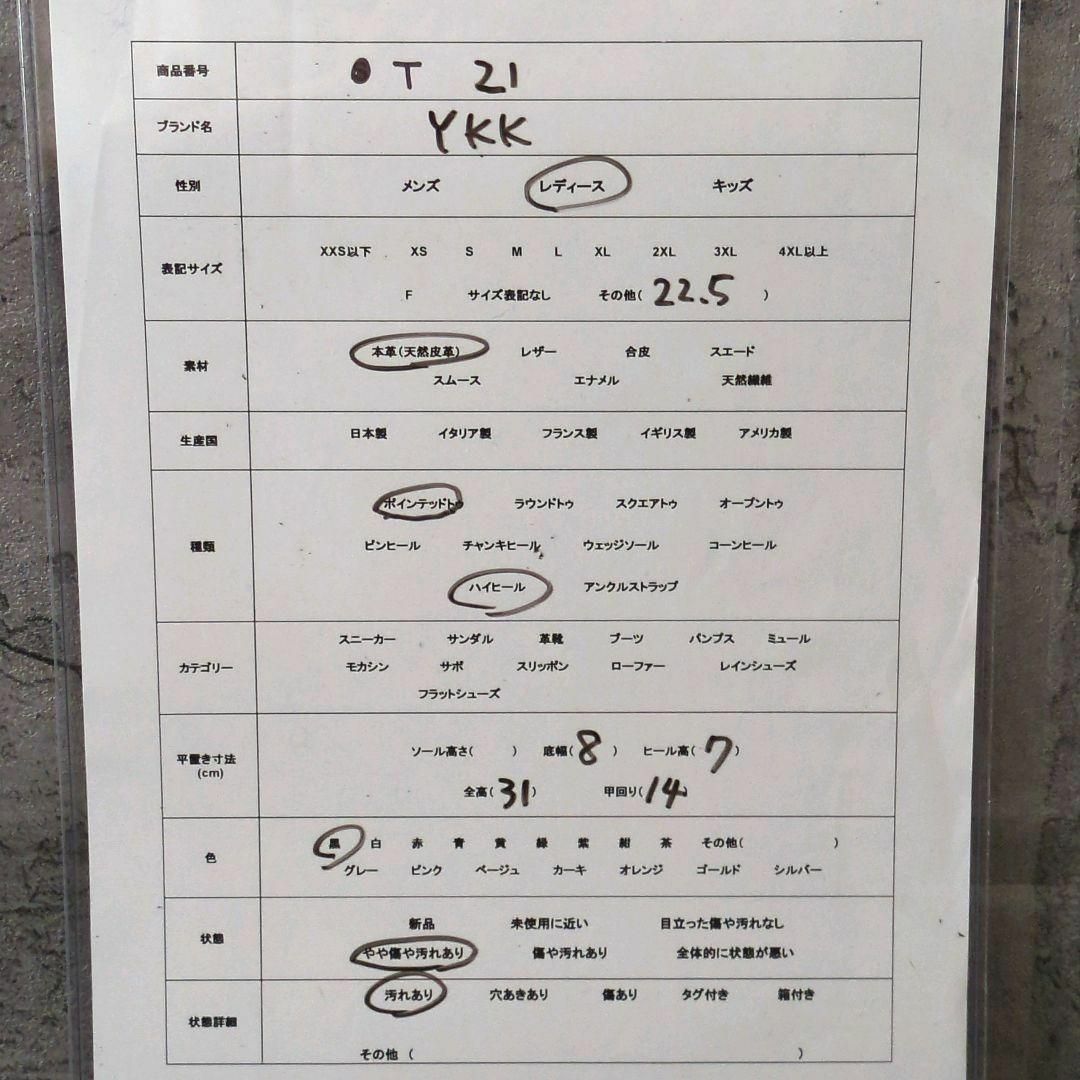 商品番号 ●T 21
ブランド名 YKK
性別 メンズ レディース キッズ
XXS以下 XS S M L XL 2XL 3XL 4XL以上
表記サイズ
F サイズ表記なし その他( 22.5 )
本革(天然皮革) レザー 合皮 スエード
素材
スムース エナメル 天然繊維
生産国 日本製 イタリア製 フランス製 イギリス製 アメリカ製
ポインテッドトゥ ラウンドトゥ スクエアトゥ オープントゥ
種類 ピンヒール チャンキヒール ウェッジソール コーンヒール
ハイヒール アンクルストラップ
スニーカー サンダル 革靴 ブーツ パンプス ミュール
カテゴリー モカシン サボ スリッポン ローファー レインシューズ
フラットシューズ
平置き寸法 ソール高さ( ) 底幅( 8 ) ヒール高( 7 )
(cm)
全高( 31 ) 甲回り( 14 )
色 黒 白 赤 青 黄 緑 紫 紺 茶 その他( )
グレー ピンク ベージュ カーキ オレンジ ゴールド シルバー
新品 未使用に近い 目立った傷や汚れなし
状態
やや傷や汚れあり 傷や汚れあり 全体的に状態が悪い
汚れあり 穴あきあり 傷あり タグ付き 箱付き
状態詳細
その他 ( )